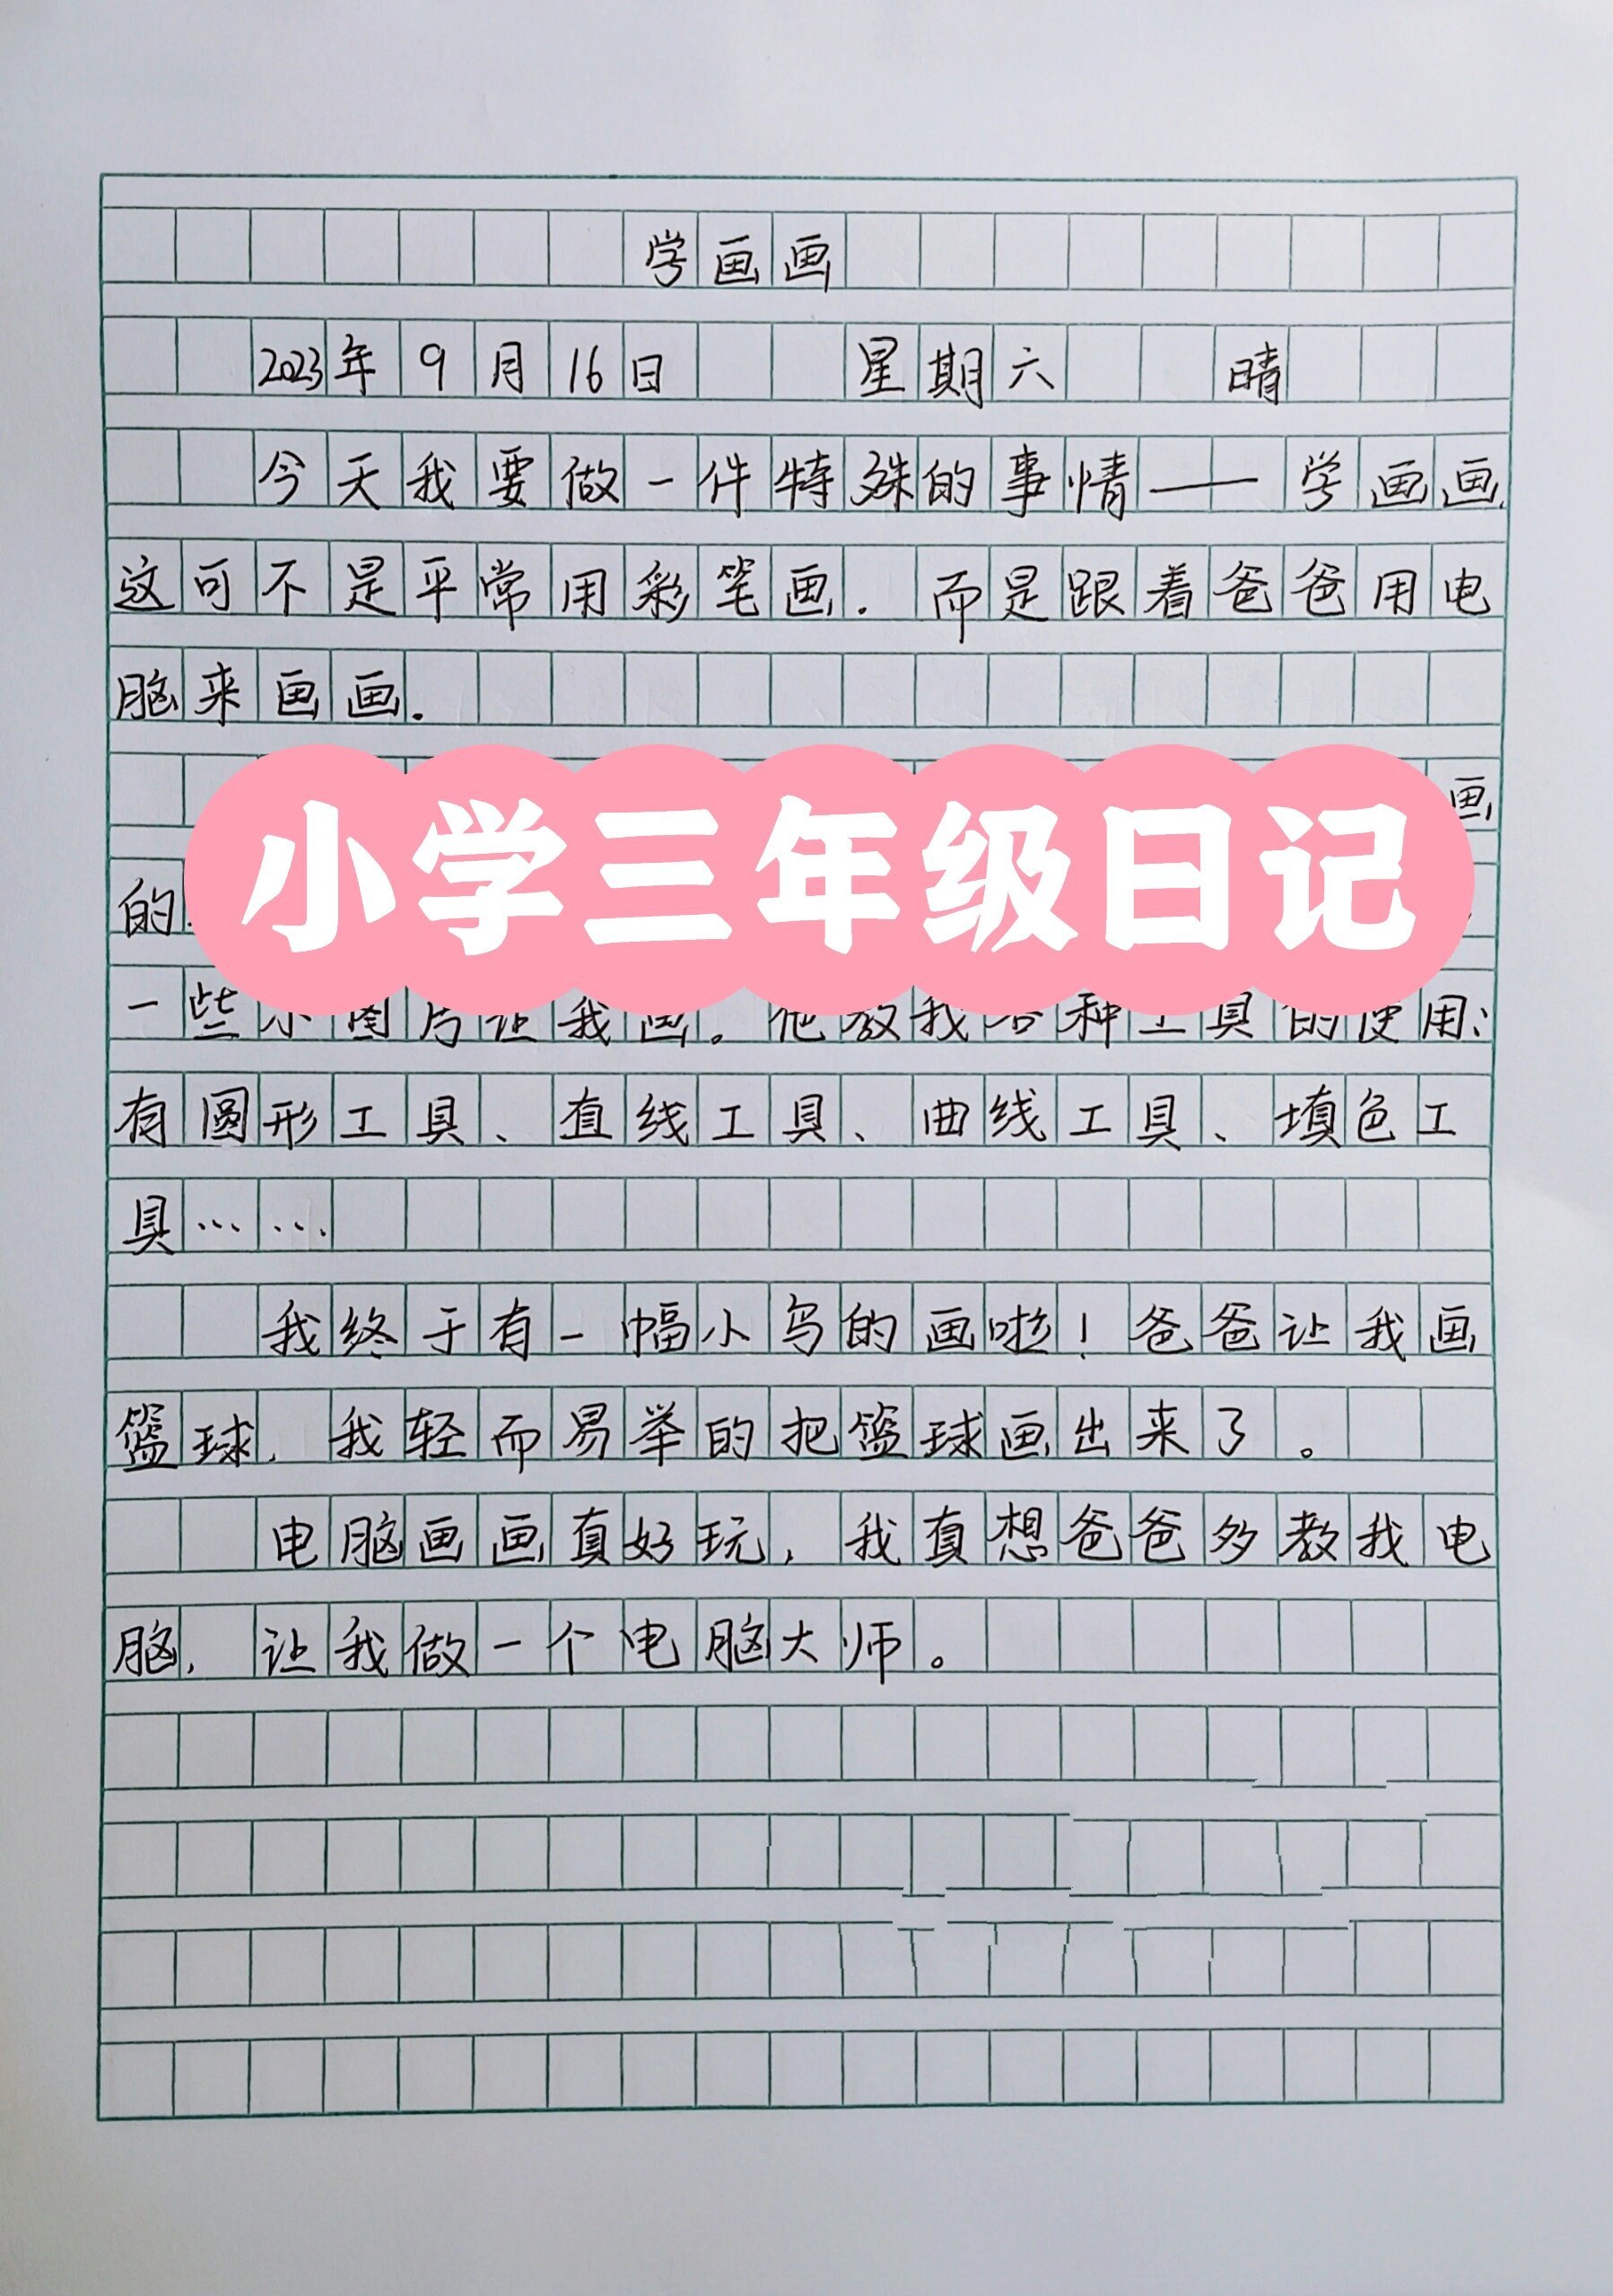 学画画
2023年9月16日 星期六 晴
今天我要做一件特殊的事情——学画画,
这可不是平常用彩笔画.而是跟着爸爸用电
脑来画画.
画
小学三年级日记
的
一些小图片让我画。他教我各种工具的使用:
有圆形工具、直线工具、曲线工具、填色工
具……
我终于有一幅小鸟的画啦!爸爸让我画
篮球,我轻而易举的把篮球画出来了。
电脑画画真好玩,我真想爸爸多教我电
脑,让我做一个电脑大师。